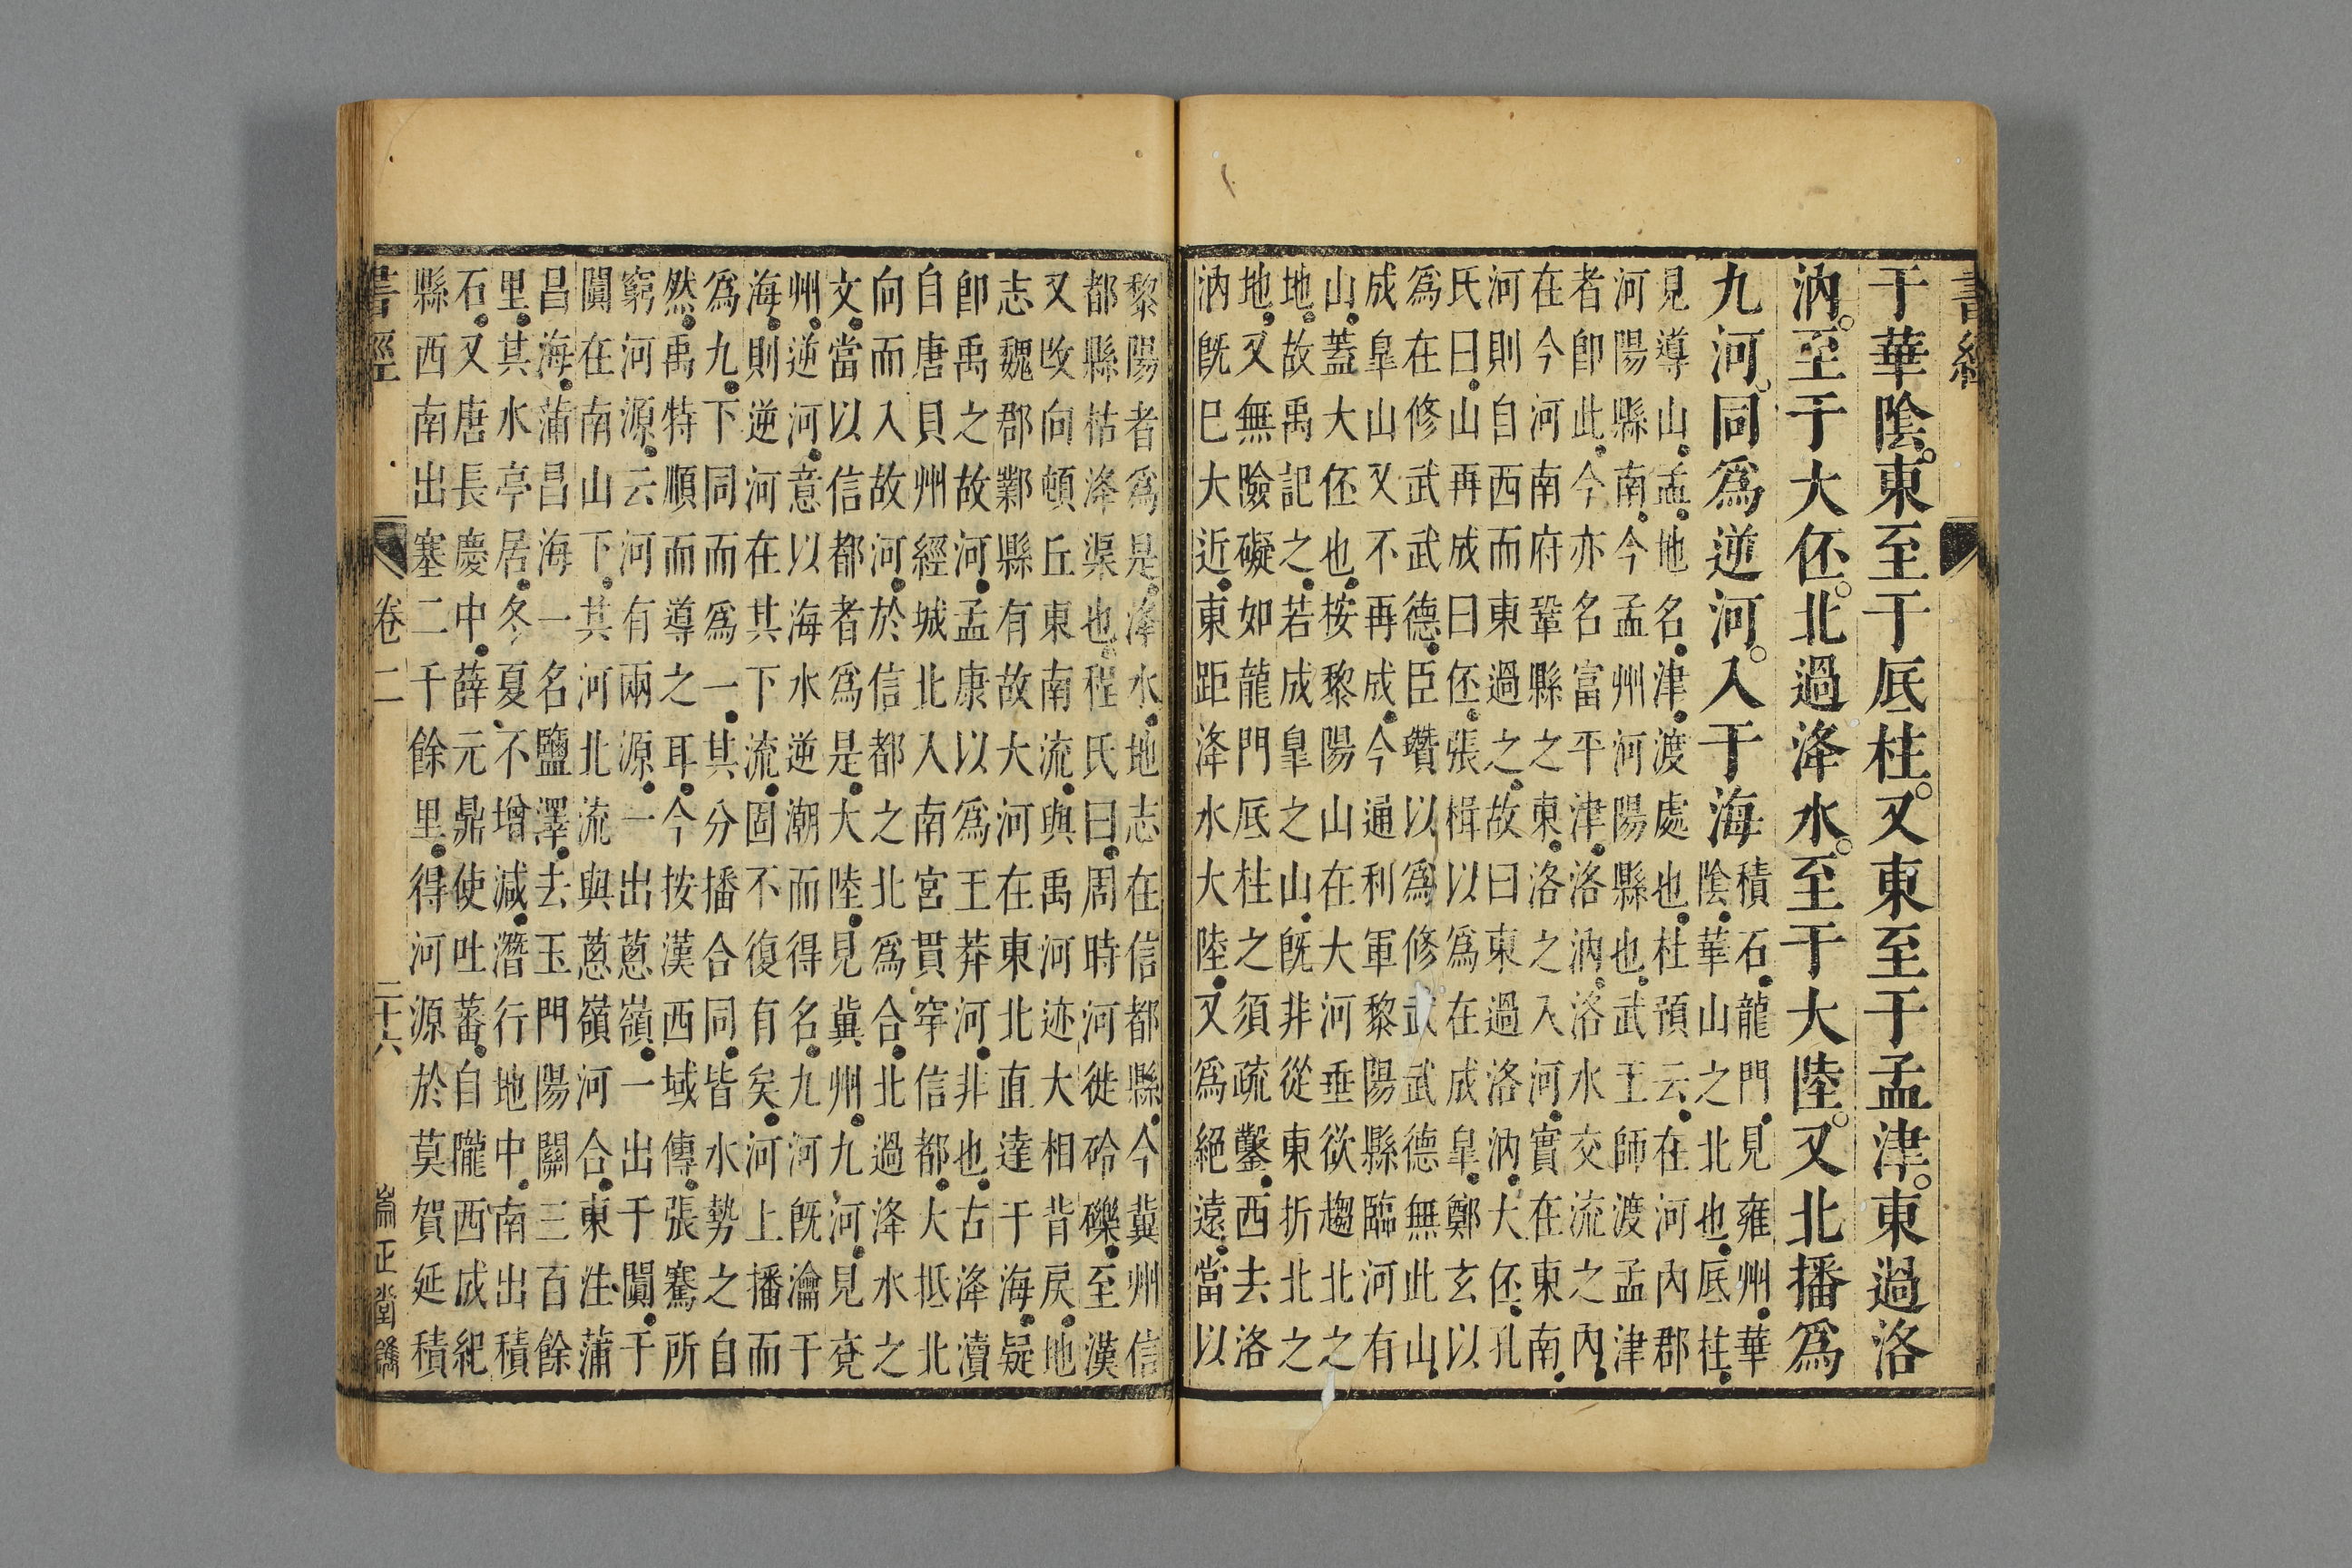 書經
于華陰。東至于底柱。又東至于孟津。東過洛
汭。至于大伾。北過洚水。至于大陸。又北播爲
九河。同爲逆河。入于海
積石龍門見雍州華
陰華山之北也底柱
見導山孟地名津渡處也杜預云在河內郡
河陽縣南今孟州河陽縣也武王師渡孟津
者卽此今亦名富平津洛汭洛水交流之內
在今河南府鞏縣之東洛之入河實在東南
河則自西而東過之故曰東過洛汭大伾孔
氏曰山再成曰伾張楫以爲在成皐鄭玄以
爲在修武武德臣瓚以爲修武武德無此山
成皐山又不再成今通利軍黎陽縣臨河有
山蓋大伾也按黎陽山在大河垂欲趨北之
地故禹記之若成皐之山旣非從東折北之
地又無險礙如龍門底柱之須疏鑿西去洛
汭旣巳大近東距洚水大陸又爲絕遠當以
黎陽者爲是洚水地志在信都縣今冀州信
都縣枯洚渠也程氏曰周時河徙砱礫至漢
又改向頓丘東南流與禹河迹大相背戾地
志魏郡鄴縣有故大河在東北直達于海疑
卽禹之故河孟康以爲王莽河非也古洚瀆
自唐貝州經城北入南宮貫穿信都大抵北
向而入故河於信都之北爲合北過洚水之
文當以信都者爲是大陸見冀州九河見兗
州逆河意以海水逆潮而得名九河旣瀹于
海則逆河在其下流固不復有矣河上播而
爲九下同而爲一其分播合同皆水勢之自
然禹特順而導之耳今按漢西域傳張騫所
窮河源云河有兩源一出蔥嶺一出于闐于
闐在南山下其河北流與蔥嶺河合東注蒲
昌海蒲昌海一名鹽澤去玉門陽關三百餘
里其水亭居冬夏不增減潛行地中南出積
石又唐長慶中薛元鼎使吐蕃自隴西成紀
縣西南出塞二千餘里得河源於莫賀延積
書經 卷二 二十六 正堂鐫